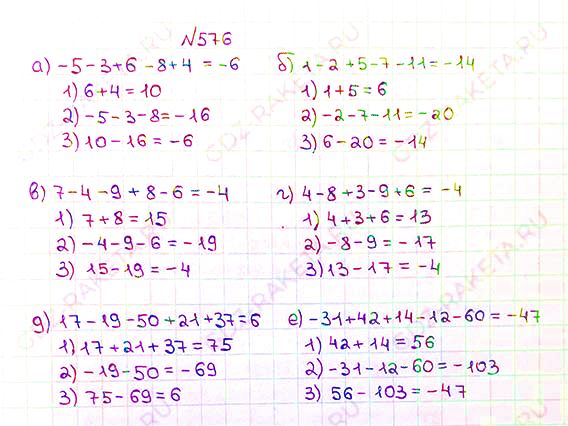 №576
а) -5-3+6-8+4 = -6
1) 6+4=10
2) -5-3-8= -16
3) 10-16 = -6
б) 1-2+5-7-11= -14
1) 1+5=6
2) -2-7-11= -20
3) 6-20= -14
в) 7-4-9+8-6 = -4
1) 7+8=15
2) -4-9-6 = -19
3) 15-19 = -4
г) 4-8+3-9+6 = -4
1) 4+3+6=13
2) -8-9= -17
3) 13-17 = -4
д) 17-19-50+21+37=6
1) 17+21+37=75
2) -19-50= -69
3) 75-69=6
е) -31+42+14-12-60= -47
1) 42+14=56
2) -31-12-60= -103
3) 56-103= -47
GDZ-RAKETA.RU